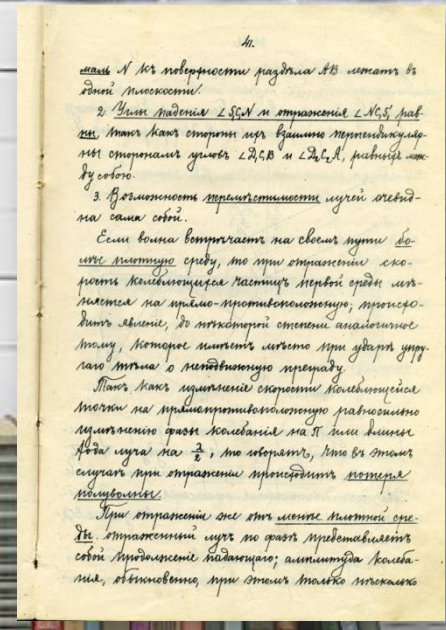 41.
маль N къ поверхности раздѣла AB лежатъ въ
одной плоскости.
2. Углы паденія ∠SCN и отраженія ∠NCS, рав-
ны, такъ какъ стороны ихъ взаимно перпендикуляр-
ны сторонамъ угловъ ∠D,C,B и ∠D₂C₂A, равныхъ меж-
ду собою.
3. Возможность перемѣстимости лучей очевид-
на сама собой.
Если волна встрѣчаетъ на своемъ пути бо-
лѣе плотную среду, то при отраженіи ско-
рость колеблющихся частицъ первой среды мѣ-
няется на прямо-противоположную; происхо-
дитъ явленіе, до нѣкоторой степени аналогичное
тому, которое имѣетъ мѣсто при ударѣ упру-
гаго тѣла о неподвижную преграду.
Такъ какъ измѣненіе скорости колеблющейся
точки на прямопротивоположную равносильно
измѣненію фазы колебанія на π или длины
хода луча на λ/2, то говорятъ, что въ этомъ
случаѣ при отраженіи происходитъ потеря
полуволны.
При отраженіи же отъ менѣе плотной сре-
ды отраженный лучъ по фазѣ представляетъ
собой продолженіе падающаго; амплитуда колеба-
нія, обыкновенно, при этомъ только нѣсколько